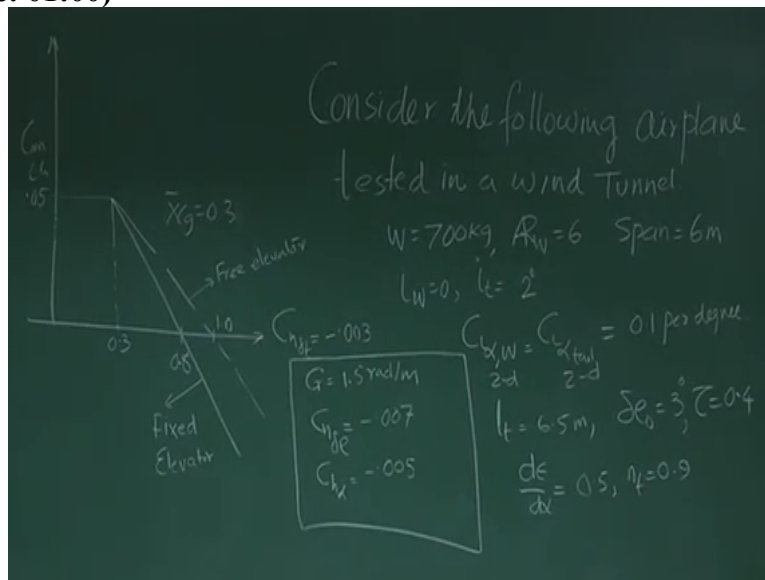 Consider the following airplane
tested in a wind Tunnel
W=700kg, ARw=6 Span=6m
iw=0, it=2°
CLα,w 2-d = CLα tail 2-d = 0.1 per degree
lt=6.5m, δe0=3°, τ=0.4
dε/dα=0.5, ηt=0.9
Cm
.05
X̄g=0.3
Free elevator
0.3
1.0
Fixed
Elevator
G=1.5 rad/m
Chδe=-.007
Chα=-.005